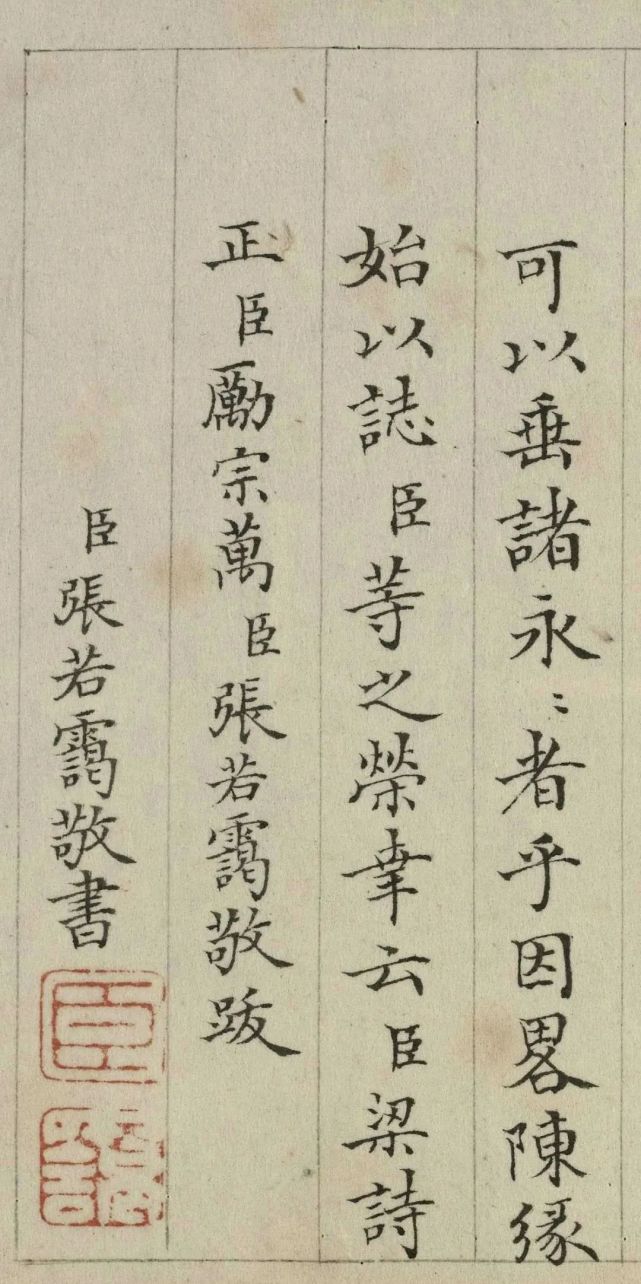 可以垂諸永〻者乎因畧陳緣
始以誌臣等之榮幸云臣梁詩
正臣勵宗萬臣張若靄敬跋
臣張若靄敬書
臣
若靄